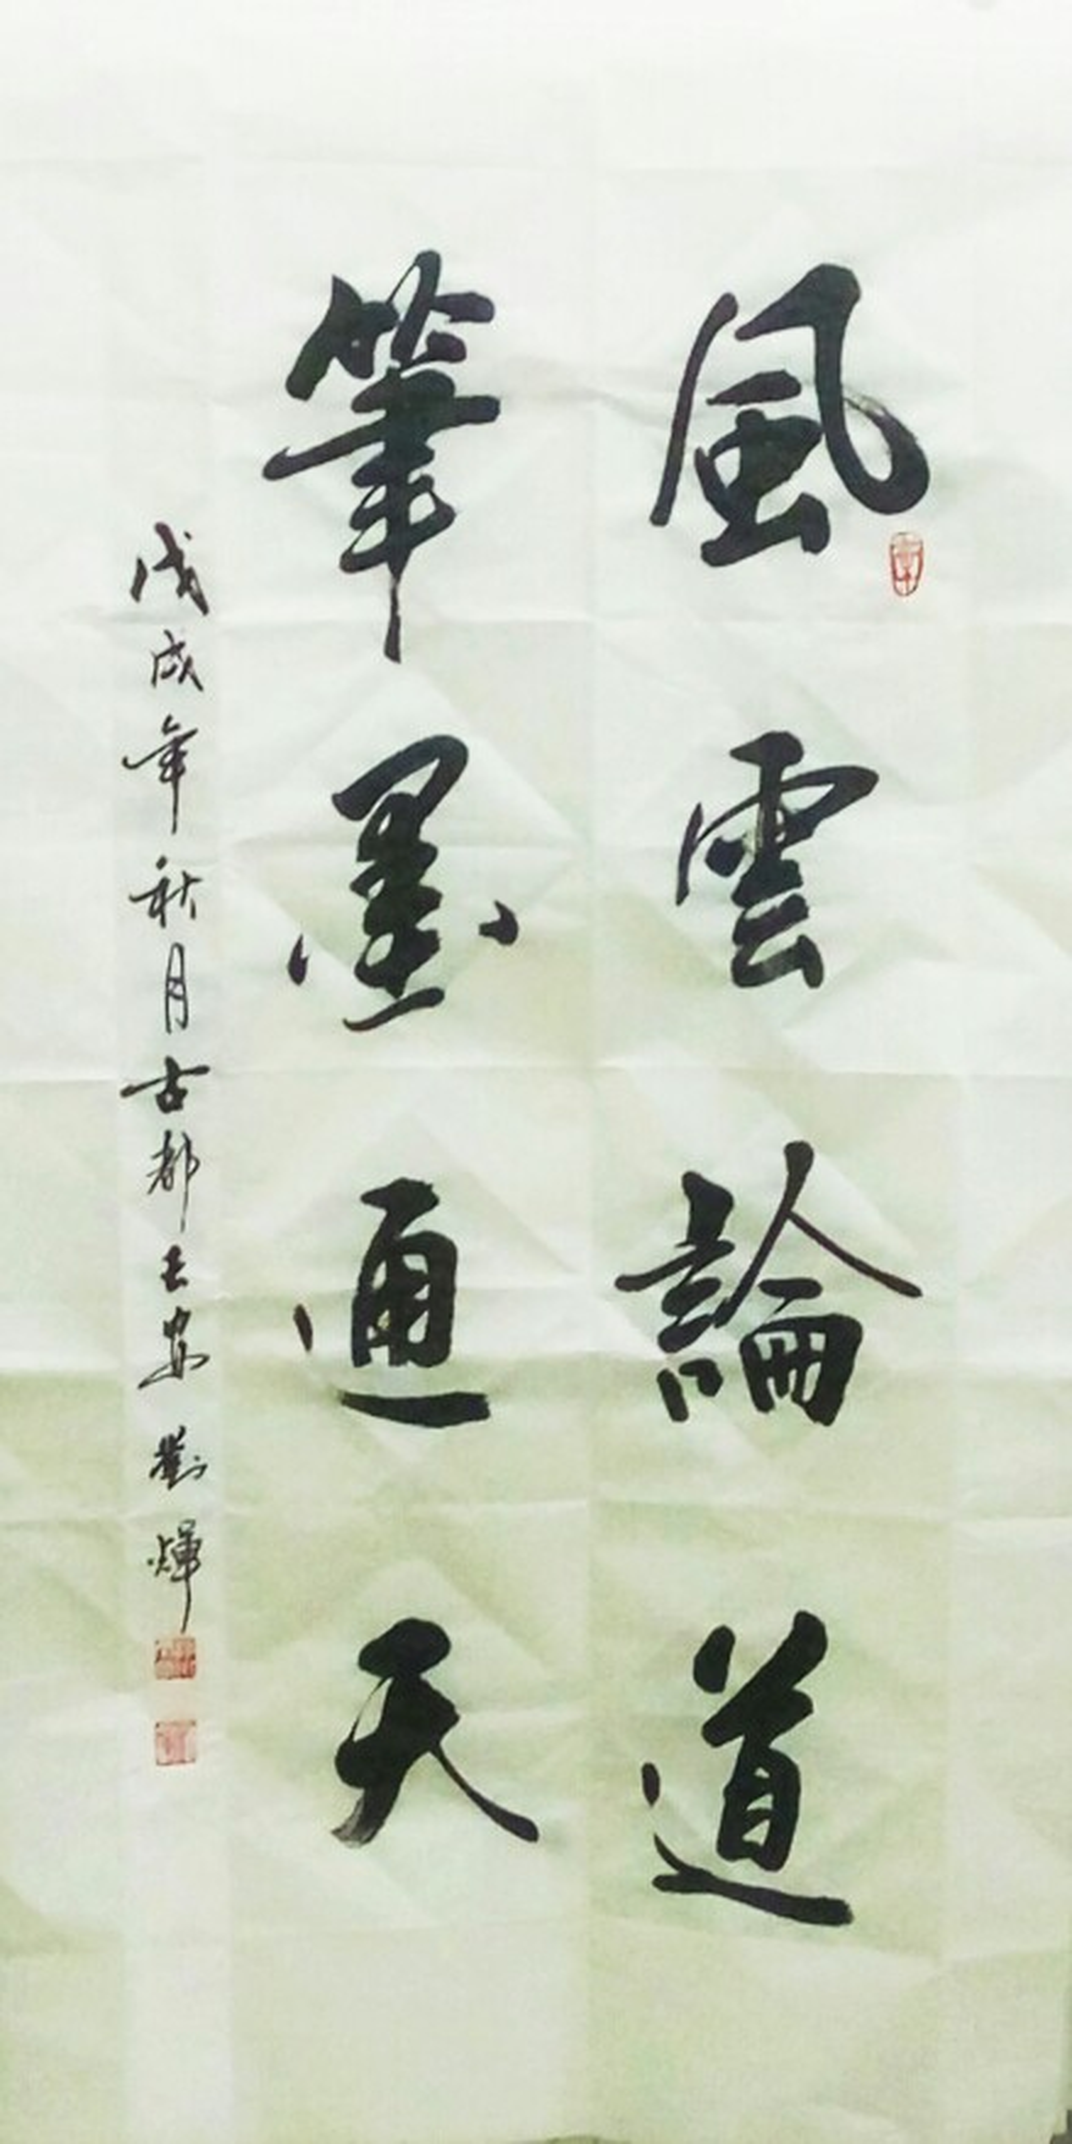 風雲論道
筆墨通天
戊戌年秋月古都長安劉輝